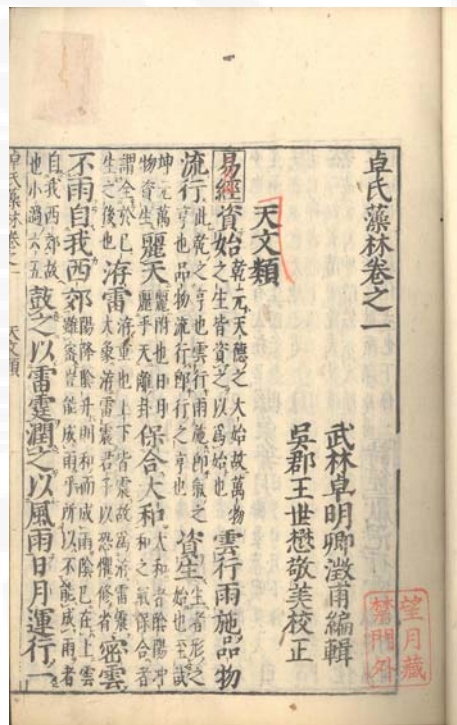 卓氏藻林卷之一
武林卓明卿澂甫編輯
吳郡王世懋敬美校正
天文類
易經資始乾元天德之大始故萬物之生皆資之以爲始也雲行雨施品物
流行此乾之亨也雲行雨施即氣之亨也品物流行即行之亨也資生生者形之始也至哉
坤元萬物資生麗天麗附也日月麗乎天離卦保合大和太和者陰陽冲和之氣保合者
謂全於已生之後也洊雷洊重也上下皆震故爲洊雷震大象洊雷震君子以恐懼修省密雲
不雨自我西郊陽降陰升則和而成雨陰已在上雲雖密豈能成雨乎所以不能成雨者
自我西郊故也小過六五鼓之以雷霆潤之以風雨日月運行一
卓氏藻林卷之一 天文類
望月藏
禁門外